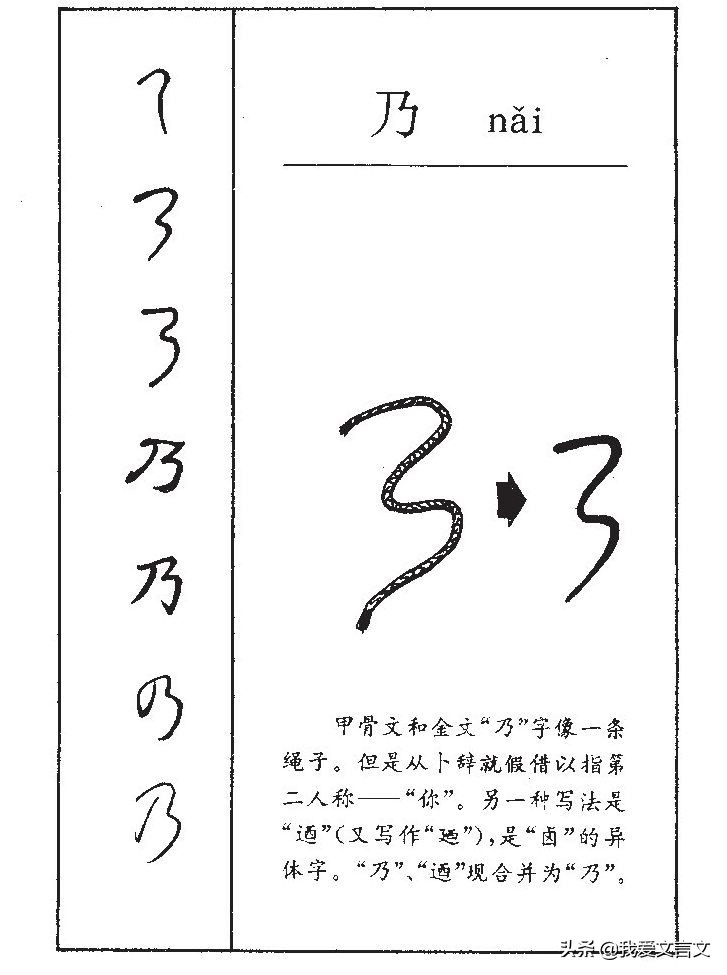 乃 nǎi
甲骨文和金文“乃”字像一条
绳子。但是从卜辞就假借以指第
二人称——“你”。另一种写法是
“迺”(又写作“廼”),是“卤”的异
体字。“乃”、“迺”现合并为“乃”。
头条 @我爱文言文